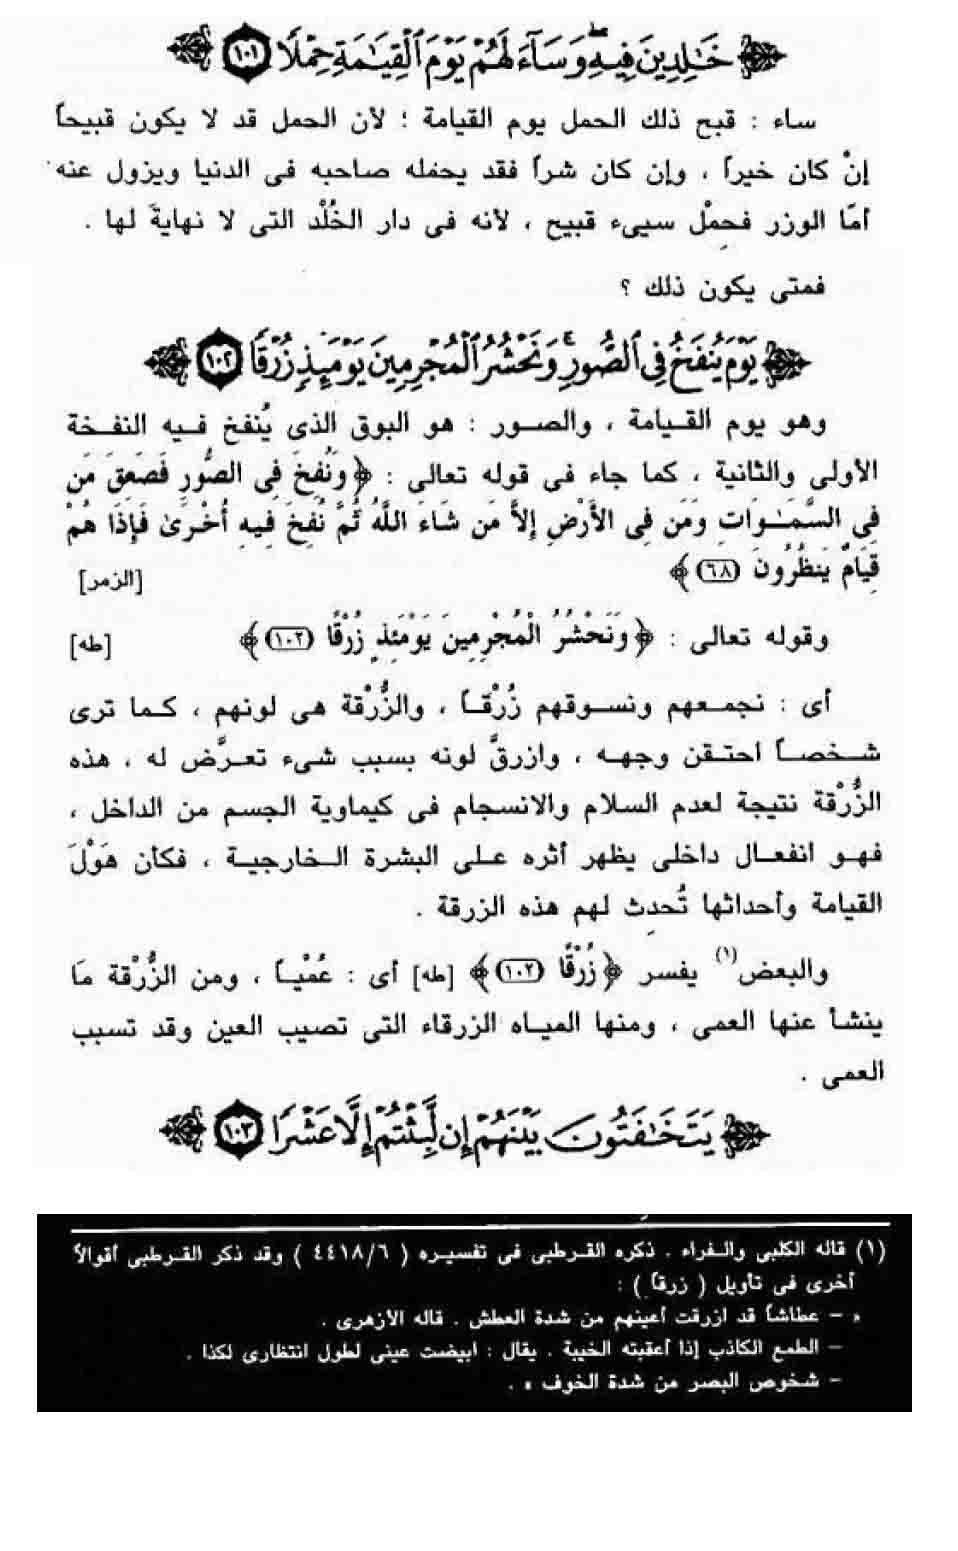 خَٰلِدِينَ فِيهِ وَسَآءَ لَهُمْ يَوْمَ ٱلْقِيَٰمَةِ حِمْلًا ١٠١
ساء : قبح ذلك الحمل يوم القيامة ؛ لأن الحمل قد لا يكون قبيحاً
إنْ كان خيراً ، وإن كان شراً فقد يحمله صاحبه فى الدنيا ويزول عنه
أمّا الوزر فحِمْل سيىء قبيح ، لأنه فى دار الخُلْد التى لا نهايةَ لها .
فمتى يكون ذلك ؟
يَوْمَ يُنفَخُ فِى ٱلصُّورِ وَنَحْشُرُ ٱلْمُجْرِمِينَ يَوْمَئِذٍ زُرْقًا ١٠٢
وهو يوم القيامة ، والصور : هو البوق الذى يُنفخ فيه النفخة
الأولى والثانية ، كما جاء فى قوله تعالى : ﴿ وَنُفِخَ فِى الصُّورِ فَصَعِقَ مَن
فِى السَّمَٰوَاتِ وَمَن فِى الأَرْضِ إِلاَّ مَن شَاءَ اللَّهُ ثُمَّ نُفِخَ فِيهِ أُخْرَىٰ فَإِذَا هُمْ
قِيَامٌ يَنظُرُونَ (٦٨) ﴾ [الزمر]
وقوله تعالى : ﴿ وَنَحْشُرُ الْمُجْرِمِينَ يَوْمَئِذٍ زُرْقًا (١٠٢) ﴾ [طه]
أى : نجمعهم ونسوقهم زُرْقاً ، والزُّرْقة هى لونهم ، كما ترى
شخصاً احتقن وجهه ، وازرقَّ لونه بسبب شىء تعرَّض له ، هذه
الزُّرْقة نتيجة لعدم السلام والانسجام فى كيماوية الجسم من الداخل ،
فهو انفعال داخلى يظهر أثره على البشرة الخارجية ، فكأن هَوْلَ
القيامة وأحداثها تُحدِث لهم هذه الزرقة .
والبعض(١) يفسر ﴿ زُرْقًا (١٠٢) ﴾ [طه] أى : عُمْياً ، ومن الزُّرْقة مَا
ينشأ عنها العمى ، ومنها المياه الزرقاء التى تصيب العين وقد تسبب
العمى .
يَتَخَٰفَتُونَ بَيْنَهُمْ إِن لَّبِثْتُمْ إِلَّا عَشْرًا ١٠٣
(١) قاله الكلبى والفراء . ذكره القرطبى فى تفسيره ( ٤٤١٨/٦ ) وقد ذكر القرطبى أقوالاً
أخرى فى تأويل ( زرقاً ) :
« – عطاشاً قد ازرقت أعينهم من شدة العطش . قاله الأزهرى .
– الطمع الكاذب إذا أعقبته الخيبة . يقال : ابيضت عينى لطول انتظارى لكذا .
– شخوص البصر من شدة الخوف » .